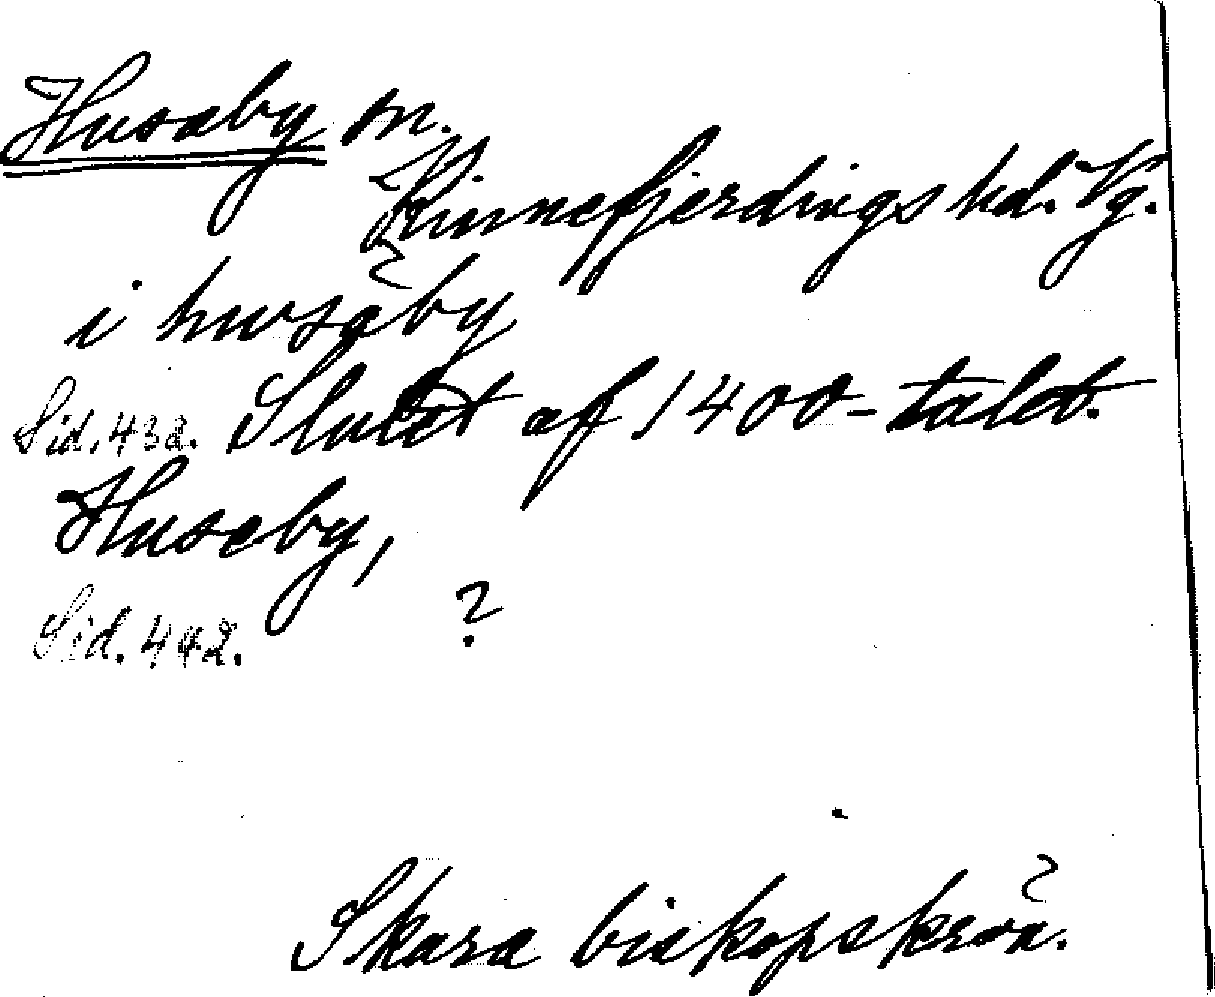 Husaby sn.
Kinnefjerdings hd. Vg.
i husaby
Sid. 432. Slutet af 1400-talet.
Husaby,
Sid. 442. ?
Skara biskopskrön.